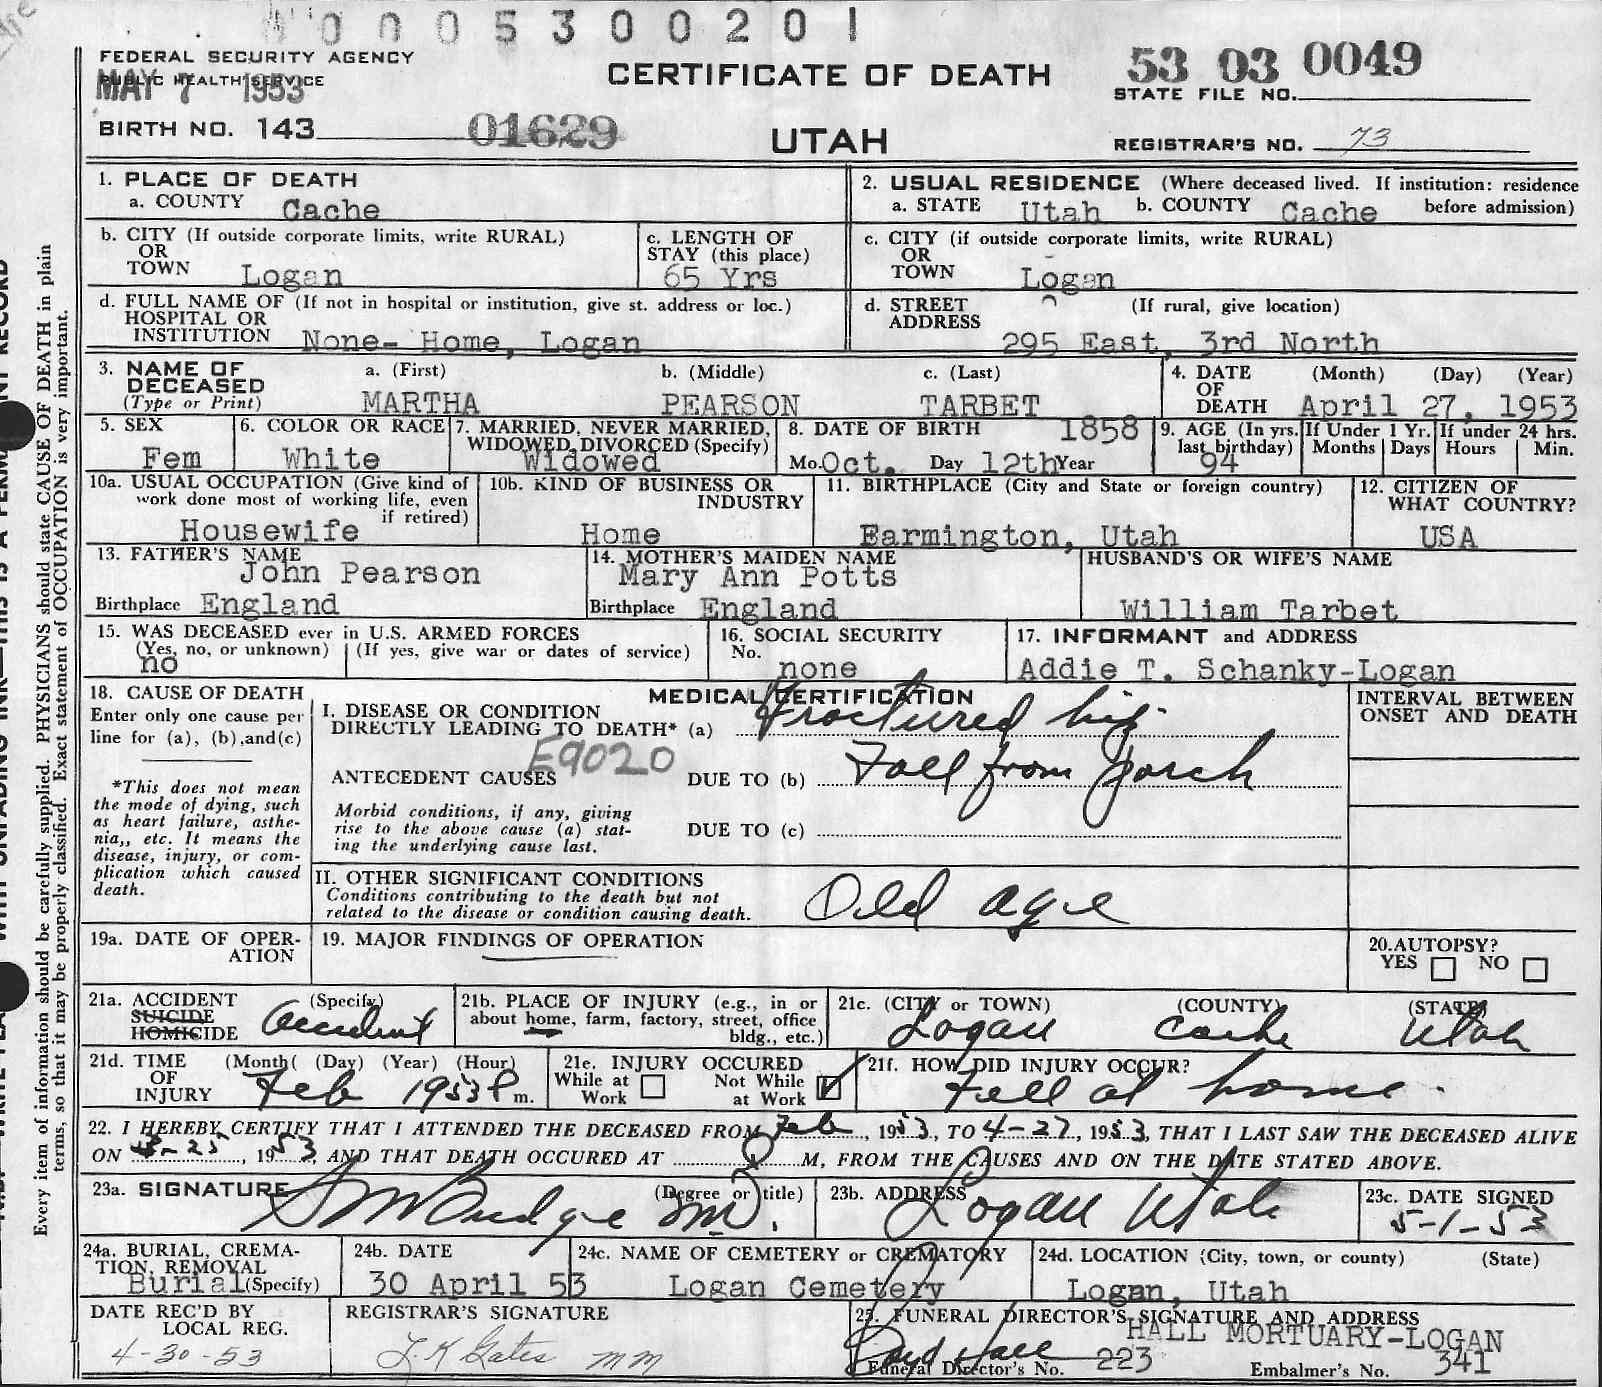 0 0 0 5 3 0 0 2 0 1
FEDERAL SECURITY AGENCY
PUBLIC HEALTH SERVICE
MAY 7 1953
CERTIFICATE OF DEATH
53 03 0049
STATE FILE NO.
BIRTH NO. 143
01629
UTAH
REGISTRAR'S NO. 73
1. PLACE OF DEATH
a. COUNTY Cache
2. USUAL RESIDENCE (Where deceased lived. If institution: residence before admission)
a. STATE Utah b. COUNTY Cache
b. CITY (If outside corporate limits, write RURAL)
OR
TOWN Logan
c. LENGTH OF
STAY (this place)
65 Yrs
c. CITY (if outside corporate limits, write RURAL)
OR
TOWN Logan
d. FULL NAME OF (If not in hospital or institution, give st. address or loc.)
HOSPITAL OR
INSTITUTION None- Home, Logan
d. STREET (If rural, give location)
ADDRESS
295 East, 3rd North
3. NAME OF
DECEASED
(Type or Print)
a. (First) b. (Middle) c. (Last)
MARTHA PEARSON TARBET
4. DATE (Month) (Day) (Year)
OF
DEATH April 27, 1953
5. SEX
Fem
6. COLOR OR RACE
White
7. MARRIED, NEVER MARRIED,
WIDOWED, DIVORCED (Specify)
Widowed
8. DATE OF BIRTH 1858
Mo. Oct. Day 12th Year
9. AGE (In yrs.
last birthday)
94
If Under 1 Yr.
Months Days
If under 24 hrs.
Hours Min.
10a. USUAL OCCUPATION (Give kind of
work done most of working life, even
if retired)
Housewife
10b. KIND OF BUSINESS OR
INDUSTRY
Home
11. BIRTHPLACE (City and State or foreign country)
Farmington, Utah
12. CITIZEN OF
WHAT COUNTRY?
USA
13. FATHER'S NAME
John Pearson
Birthplace England
14. MOTHER'S MAIDEN NAME
Mary Ann Potts
Birthplace England
HUSBAND'S OR WIFE'S NAME
William Tarbet
15. WAS DECEASED ever in U.S. ARMED FORCES
(Yes, no, or unknown) (If yes, give war or dates of service)
no
16. SOCIAL SECURITY
No.
none
17. INFORMANT and ADDRESS
Addie T. Schanky-Logan
18. CAUSE OF DEATH
Enter only one cause per
line for (a), (b),and(c)
*This does not mean
the mode of dying, such
as heart failure, asthe-
nia,, etc. It means the
disease, injury, or com-
plication which caused
death.
MEDICAL CERTIFICATION
I. DISEASE OR CONDITION
DIRECTLY LEADING TO DEATH* (a) Fractured hip
E9020
ANTECEDENT CAUSES DUE TO (b) Fall from porch
Morbid conditions, if any, giving
rise to the above cause (a) stat-
ing the underlying cause last.
DUE TO (c)
INTERVAL BETWEEN
ONSET AND DEATH
II. OTHER SIGNIFICANT CONDITIONS
Conditions contributing to the death but not
related to the disease or condition causing death.
Old age
19a. DATE OF OPER-
ATION
19. MAJOR FINDINGS OF OPERATION
20.AUTOPSY?
YES NO
21a. ACCIDENT (Specify)
SUICIDE
HOMICIDE
Accident
21b. PLACE OF INJURY (e.g., in or
about home, farm, factory, street, office
bldg., etc.)
21c. (CITY or TOWN) (COUNTY) (STATE)
Logan Cache Utah
21d. TIME (Month( (Day) (Year) (Hour)
OF
INJURY Feb 1953 P m.
21e. INJURY OCCURED
While at Work Not While at Work
21f. HOW DID INJURY OCCUR?
Fell at home.
22. I HEREBY CERTIFY THAT I ATTENDED THE DECEASED FROM Feb, 1953, TO 4-27, 1953, THAT I LAST SAW THE DECEASED ALIVE
ON 25, 1953, AND THAT DEATH OCCURED AT P M, FROM THE CAUSES AND ON THE DATE STATED ABOVE.
23a. SIGNATURE (Degree or title)
S M Budge MD.
23b. ADDRESS
Logan Utah
23c. DATE SIGNED
5-1-53
24a. BURIAL, CREMA-
TION, REMOVAL
Burial (Specify)
24b. DATE
30 April 53
24c. NAME OF CEMETERY or CREMATORY
Logan Cemetery
24d. LOCATION (City, town, or county) (State)
Logan, Utah
DATE REC'D BY
LOCAL REG.
4-30-53
REGISTRAR'S SIGNATURE
Gates
25. FUNERAL DIRECTOR'S SIGNATURE AND ADDRESS
HALL MORTUARY-LOGAN
Boyd Hall
Funeral Director's No. 223 Embalmer's No. 341
Every item of information should be carefully supplied. PHYSICIANS should state CAUSE OF DEATH in plain
terms, so that it may be properly classified. Exact statement of OCCUPATION is very important.